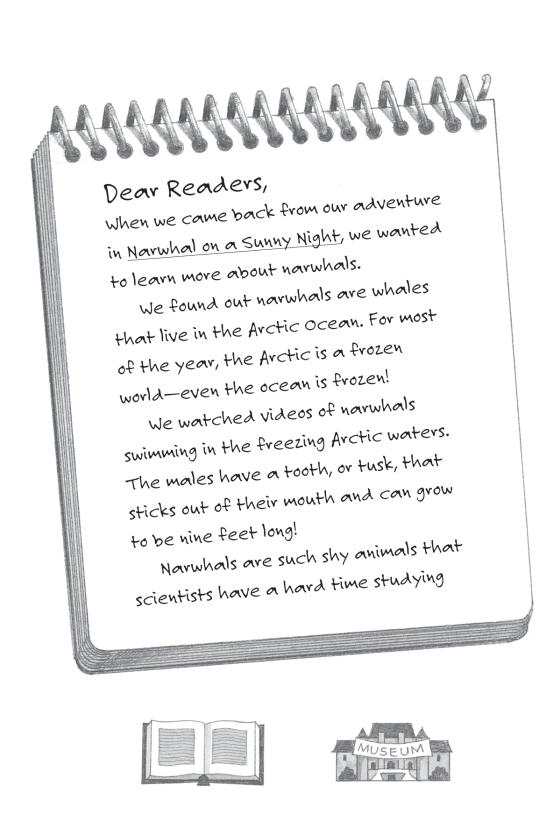 Dear Readers,
When we came back from our adventure
in Narwhal on a Sunny Night, we wanted
to learn more about narwhals.
We found out narwhals are whales
that live in the Arctic Ocean. For most
of the year, the Arctic is a frozen
world—even the ocean is frozen!
We watched videos of narwhals
swimming in the freezing Arctic waters.
The males have a tooth, or tusk, that
sticks out of their mouth and can grow
to be nine feet long!
Narwhals are such shy animals that
scientists have a hard time studying
MUSEUM